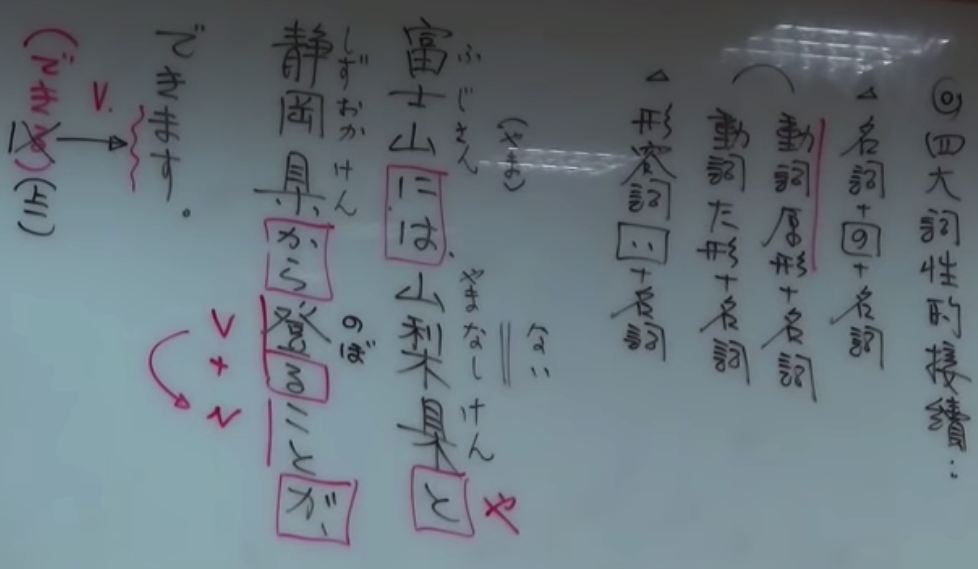 ◎四大詞性的接續：
△名詞+の+名詞
動詞原形+名詞
動詞た形+名詞
△形容詞い+名詞
ない
(やま)
ふじさん やまなしけん
富士山には、山梨県と や
しずおかけん のぼ
静岡県から登ることが、
V+N
できます。
V.
(できる) (上二)